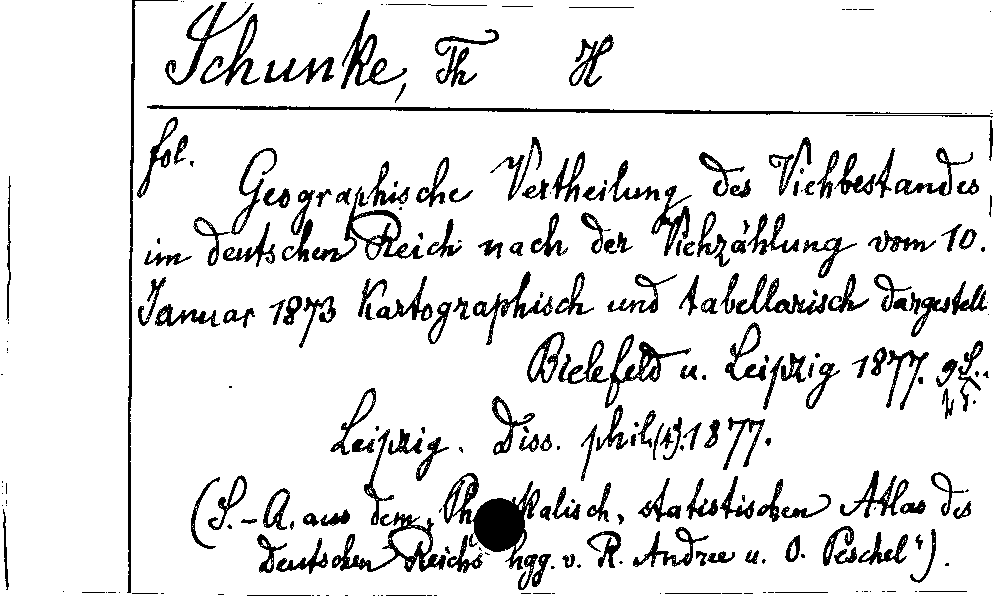 Schunke, Th H
fol.
Geographische Vertheilung des Viehbestandes
im deutschen Reich nach der Viehzählung vom 10.
Januar 1873 kartographisch und tabellarisch dargestell
Bielefeld u. Leipzig 1877. 9 S..
Leipzig. Diss. phil. 1877.
(S.-A. aus dem „Ph kalisch, statistischen Atlas des
Deutschen Reichs hgg. v. R. Andree u. O. Peschel").